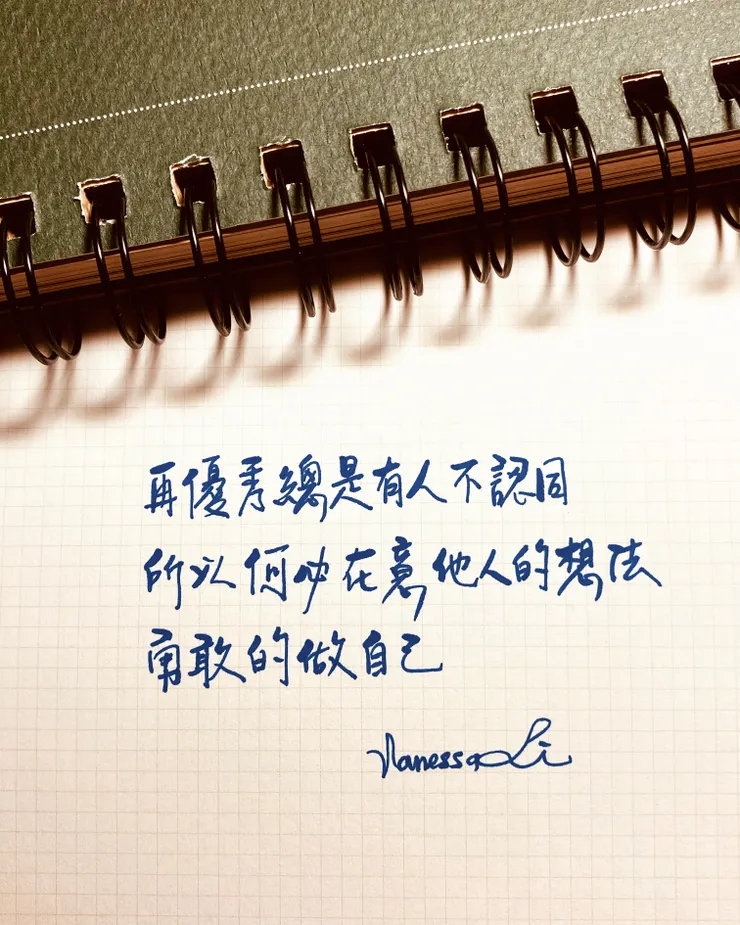 再優秀總是有人不認同
所以何必在意他人的想法
勇敢的做自己
Vanessa Li